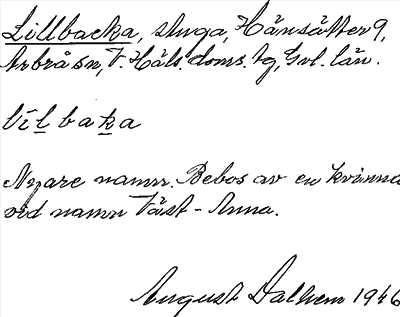 Lillbacka, stuga, Hänsätter 9,
Arbrå sn, V. Häls. doms. tg, Gvl. län.
lilbaka
Nyare namn. Bebos av en kvinna
vid namn Väst-Anna.
August Dalhem 1946